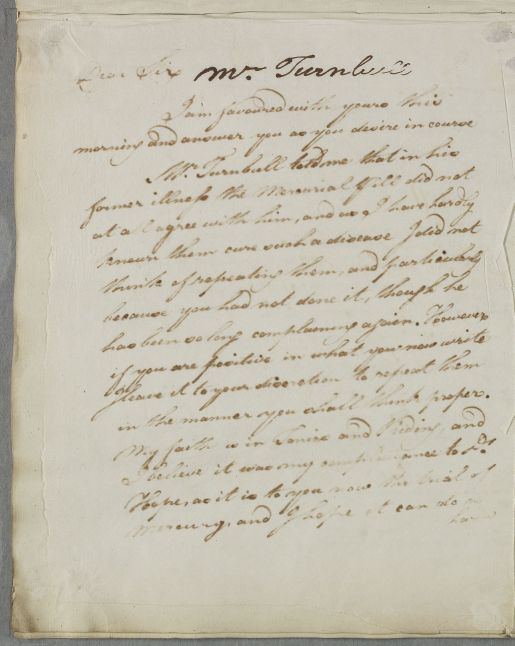 Dear Sir Mr. Turnbull
I am favoured with yours this
morning and answer you as you desire in course
Mr. Turnbull told me that in his
former illness the Mercurial Pill did not
at all agree with him, and as I have hardly
known them cure such a disease I did not
think of repeating them, and particularly
because you had not done it, though he
has been so long complaining again. However
if you are positive in what you now write
I leave it to your discretion to repeat them
in the manner you shall think proper.
My faith is in Tonics and Riding, and
I believe it was my compliance to Dr.
Hope, as it is to you now the trial of
Mercury, and I hope it can do no
harm